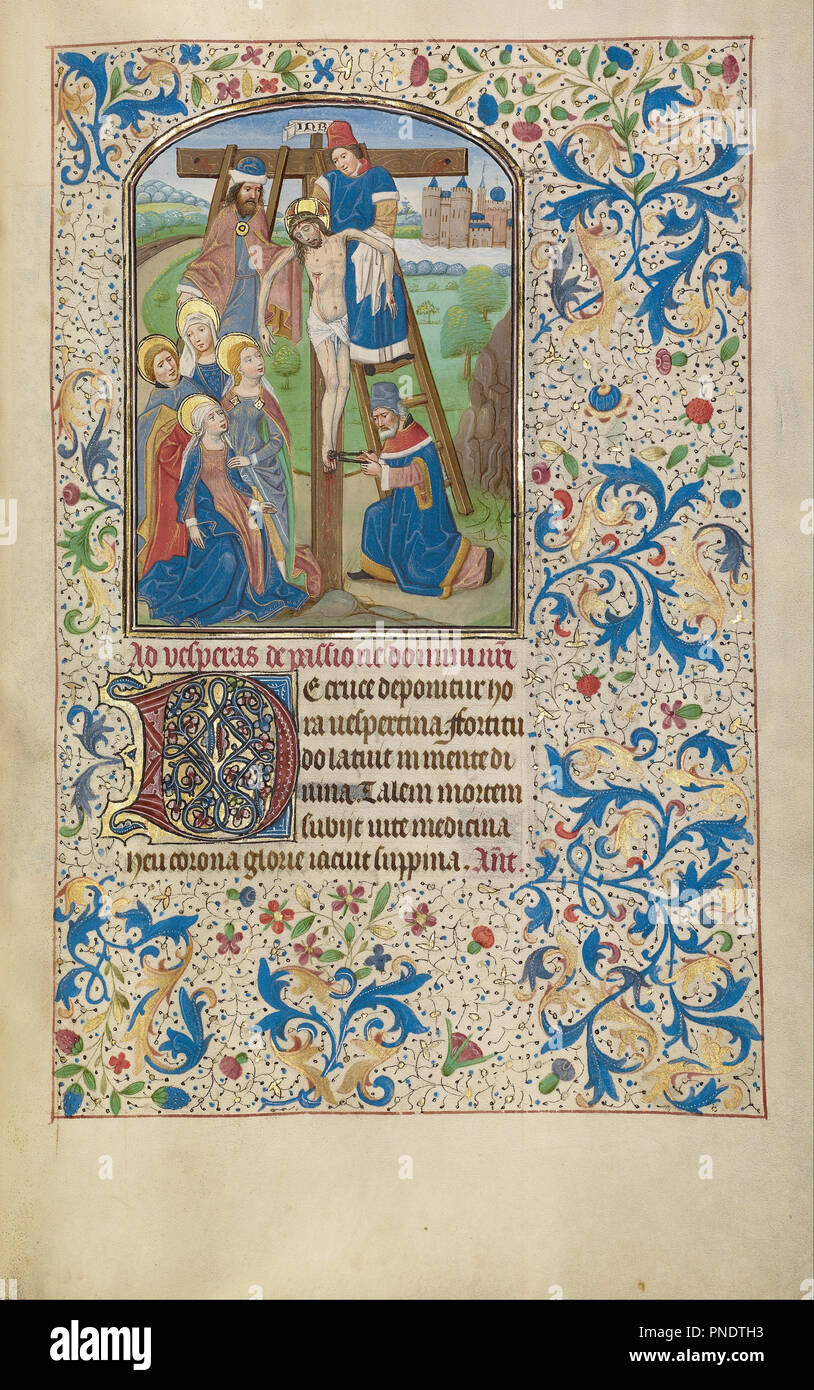 INRI
Ad vesperas de passione domini nri
De cruce deponitur ho
ra vespertina. ffortitu
do latuit in mente di
uina. Talem mortem
subijt vite medicina
heu corona glorie iacuit suppina. Ant.
alamy
alamy
Image ID: PNDTH3
www.alamy.com